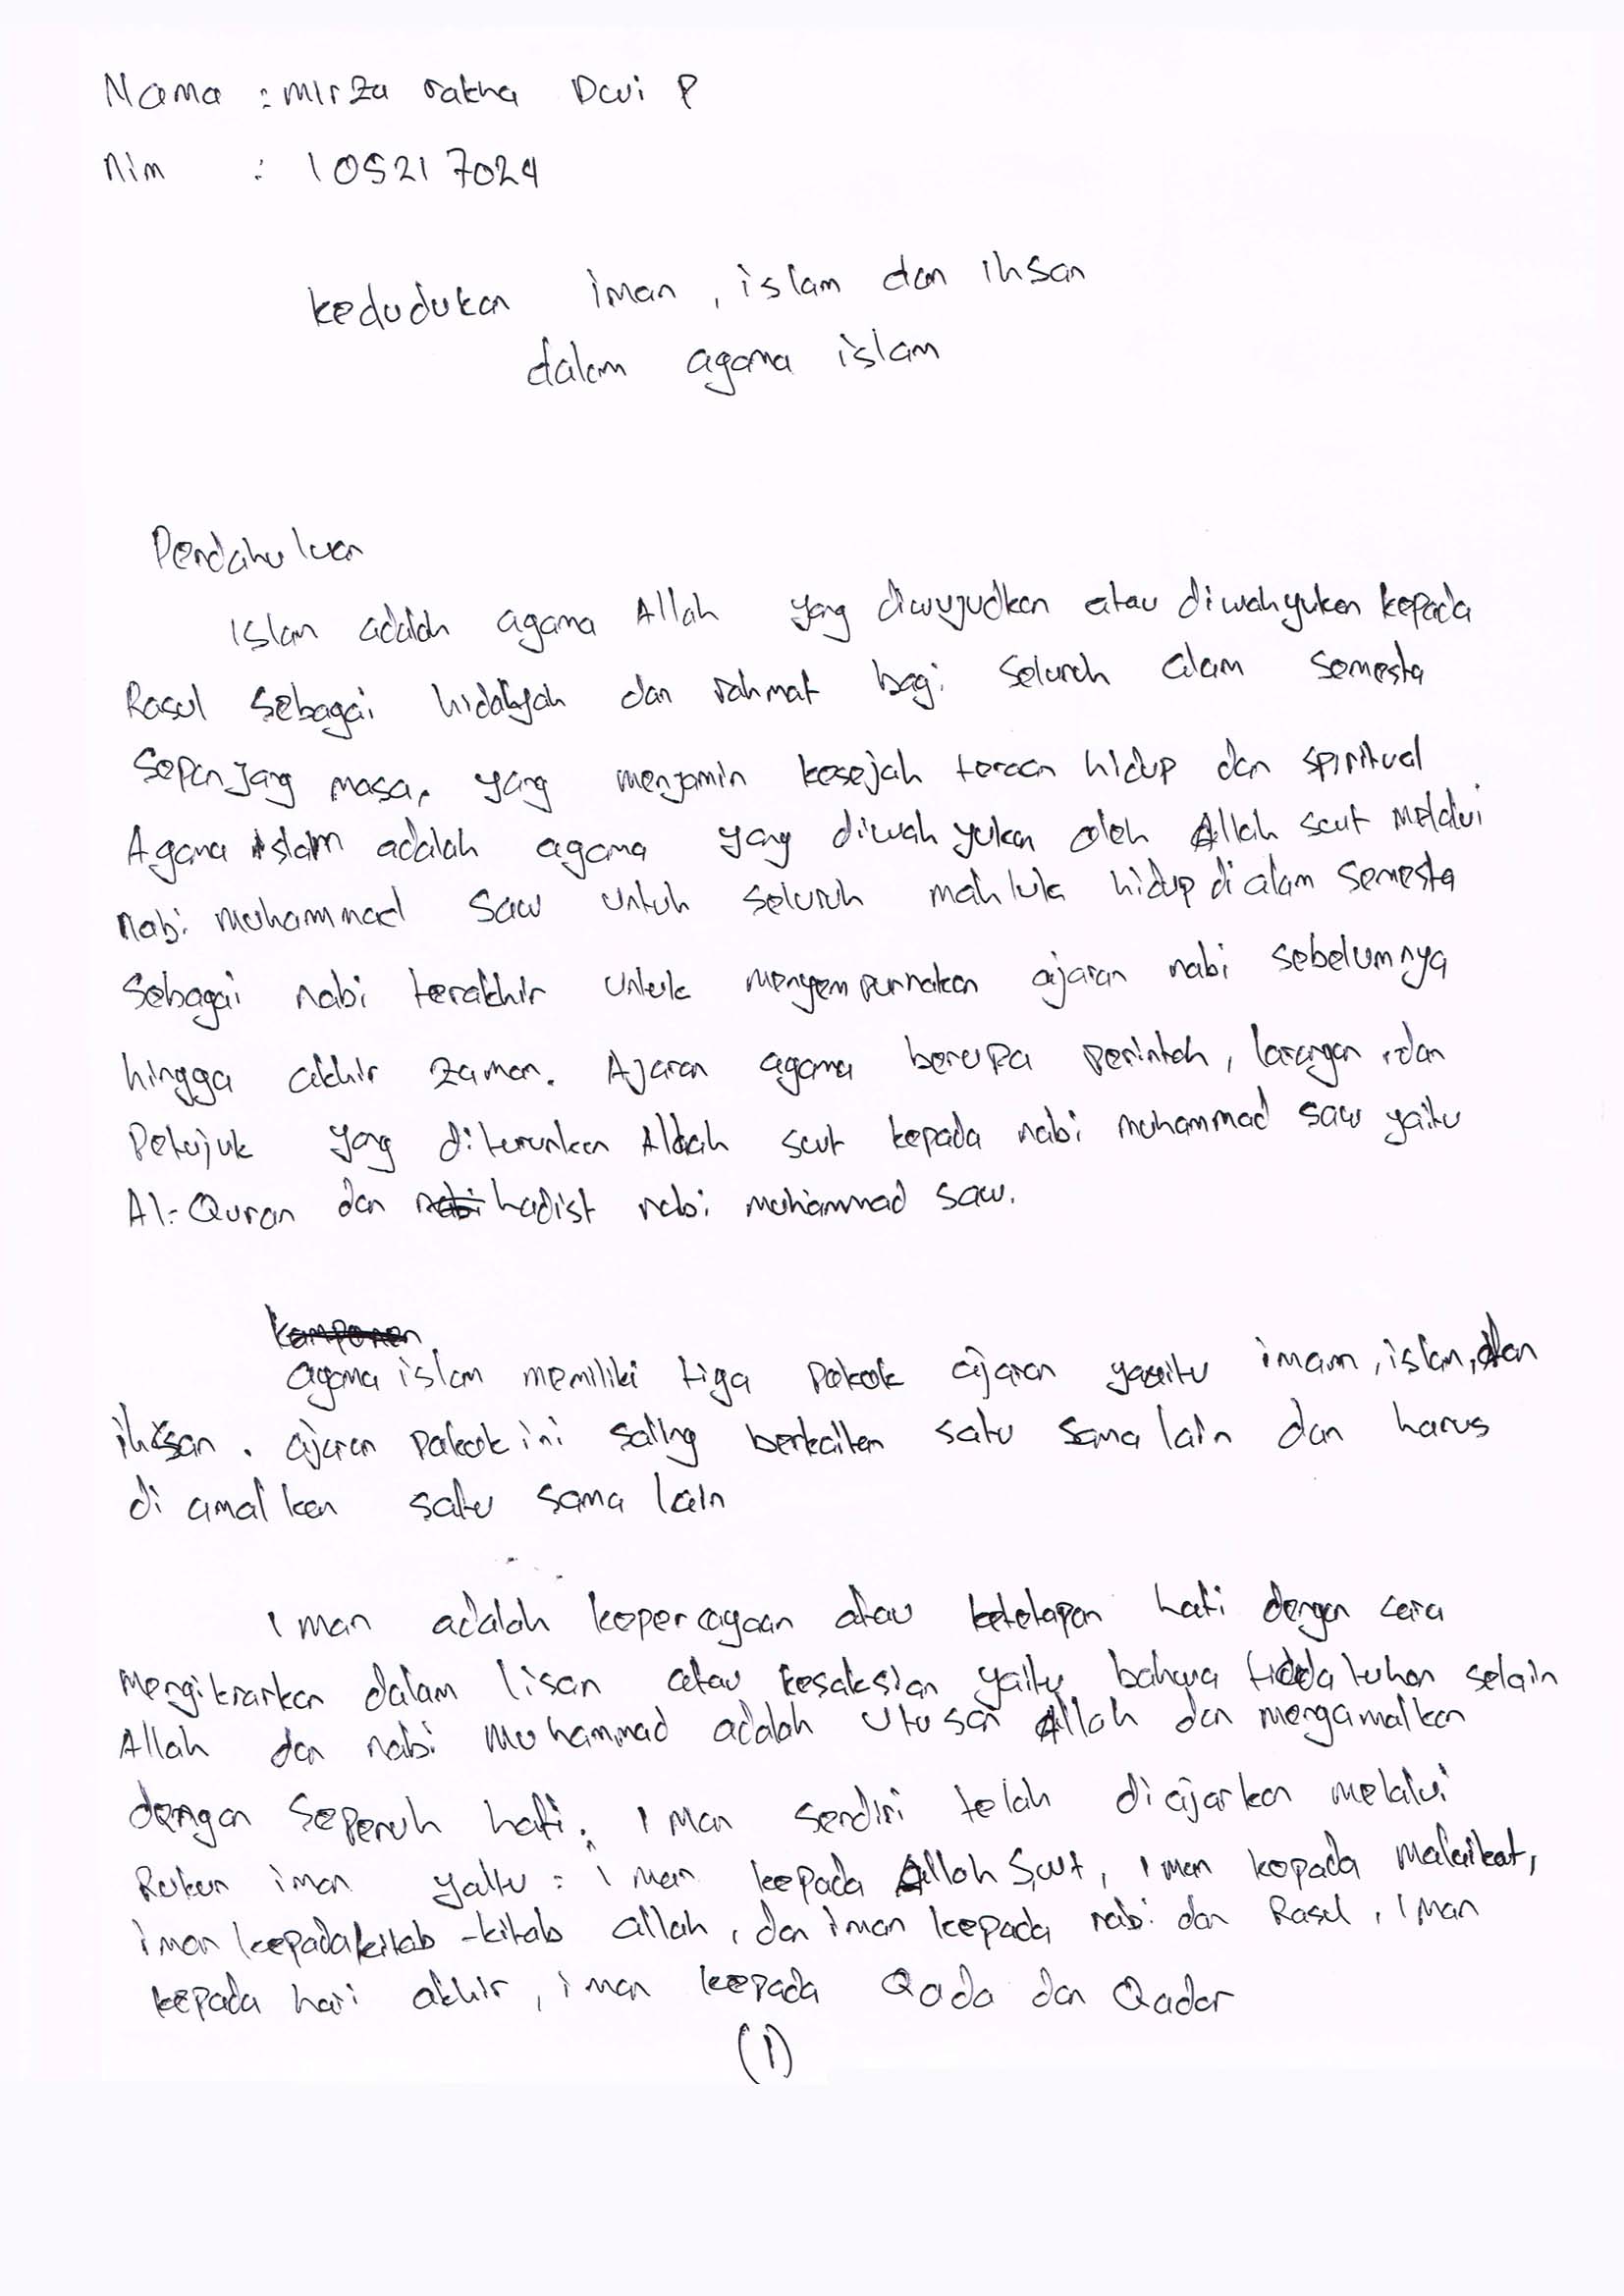 Nama : mirza rakha Davi P
Nim : 105217024
kedudukan iman, islam dan ihsan
dalam agama islam
Pendahuluan
Islam adalah agama Allah yang diwujudkan atau diwahyukan kepada
Rasul sebagai hidayah dan rahmat bagi seluruh alam semesta
Sepanjang masa, yang menjamin kesejah teraan hidup dan spiritual
Agama islam adalah agama yang diwah yukan oleh Allah swt melalui
nabi muhammad saw untuk seluruh mahluk hidup di alam semesta
Sebagai nabi terakhir untuk menyempurnakan ajaran nabi sebelumnya
hingga akhir zaman. Ajaran agama berupa perintah, larangan, dan
Petujuk yang diturunkan Allah swt kepada nabi muhammad saw yaitu
Al-Quran dan hadist nabi muhammad saw.
Komponen
agama islam memiliki tiga pokok ajaran yaitu imam, islam, dan
ihsan. ajaran pokok ini saling berkaitan satu sama lain dan harus
di amal kan satu sama lain
Iman adalah kepercayaan atau ketetapan hati dengan cara
mengikrarkan dalam lisan atau kesaksian yaitu bahwa tiada tuhan selain
Allah dan nabi Muhammad adalah utusan Allah dan mengamalkan
dengan sepenuh hati. Iman sendiri telah diajarkan melalui
Rukun iman yaitu : iman kepada Allah Swt, iman kepada malaikat,
iman kepada kitab-kitab allah, dan iman kepada nabi dan Rasul, Iman
kepada hari akhir, iman kepada Qada dan Qadar
(1)